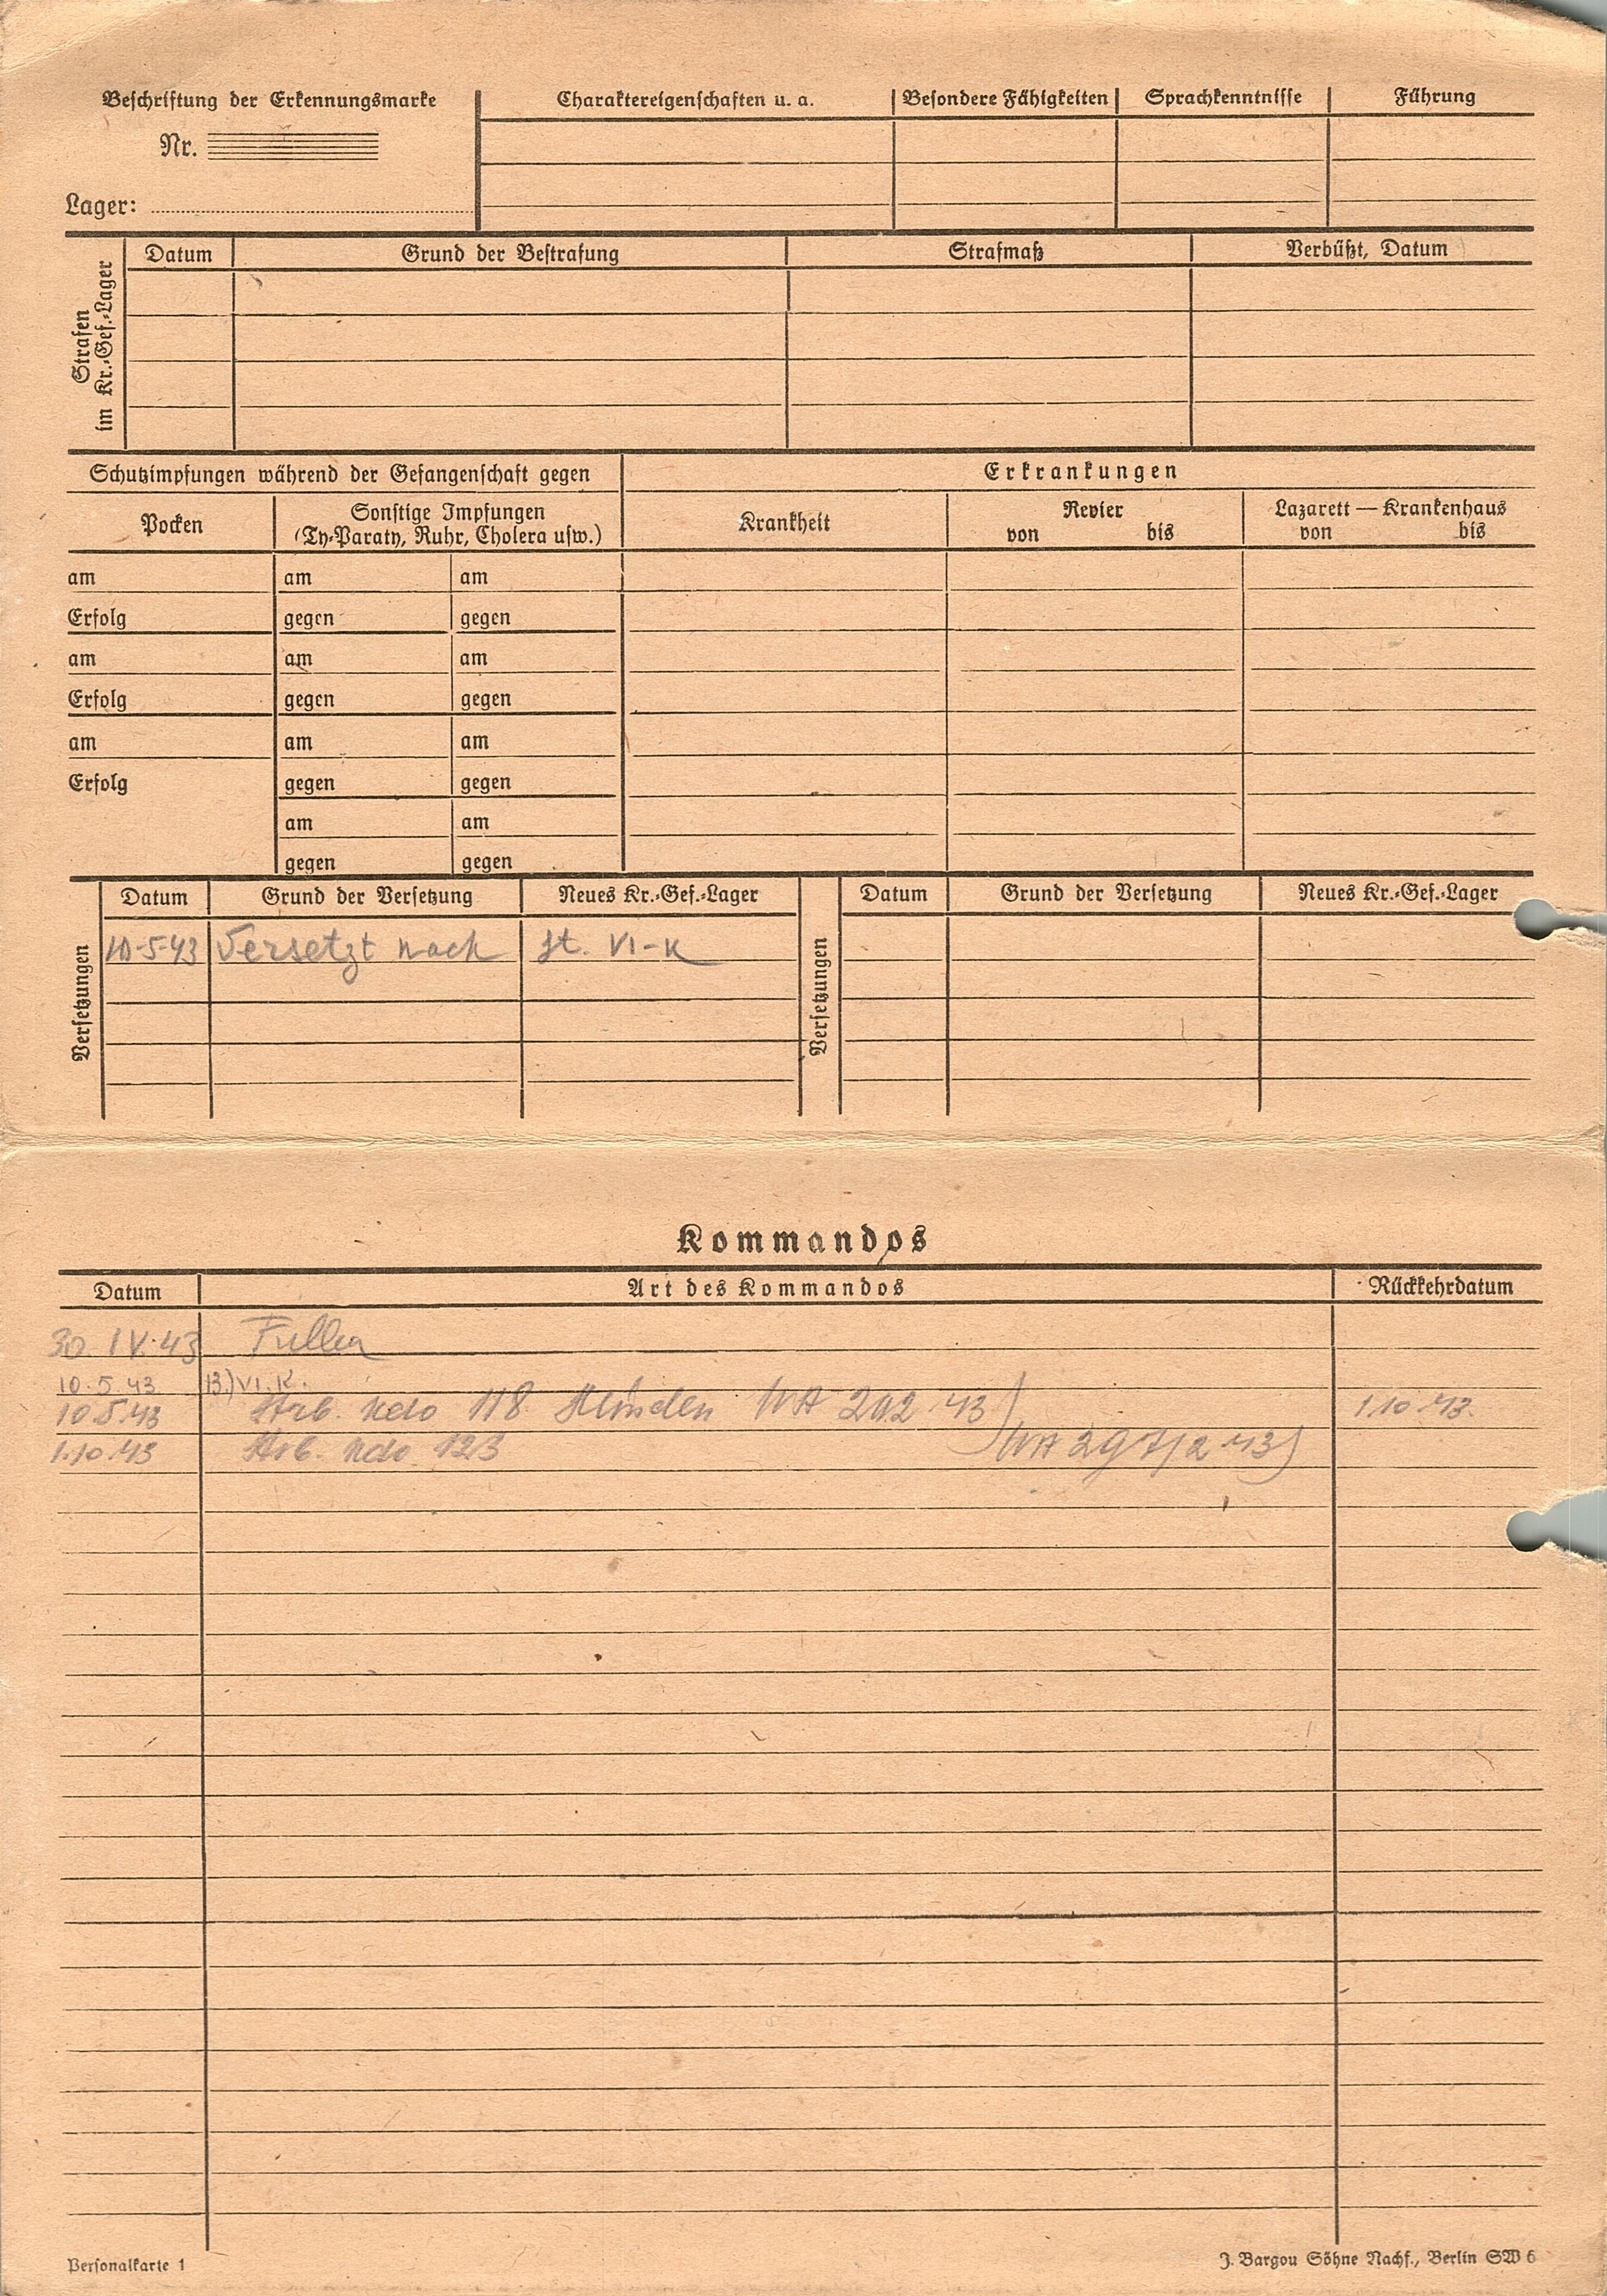 Beschriftung der Erkennungsmarke
Nr.
Lager:
Charaktereigenschaften u. a.
Besondere Fähigkeiten
Sprachkenntnisse
Führung
Strafen
im Kr.-Gef.-Lager
Datum
Grund der Bestrafung
Strafmaß
Verbüßt, Datum
Schutzimpfungen während der Gefangenschaft gegen
Erkrankungen
Pocken
Sonstige Impfungen
(Ty-Paraty, Ruhr, Cholera usw.)
Krankheit
Revier
von bis
Lazarett — Krankenhaus
von bis
am am am
Erfolg gegen gegen
am am am
Erfolg gegen gegen
am am am
Erfolg gegen gegen
am am
gegen gegen
Versetzungen
Datum Grund der Versetzung Neues Kr.-Gef.-Lager
10-5-43 Versetzt nach St. VI-K
Versetzungen
Datum Grund der Versetzung Neues Kr.-Gef.-Lager
Kommandos
Datum Art des Kommandos Rückkehrdatum
30. IV. 43
10. 5 43 VI. K.
10.5.43 Arb. Kdo 118 43) 1.10.43.
1.10.43 Arb. Kdo 123 43)
Personalkarte 1
J. Bargou Söhne Nachf., Berlin SW 6